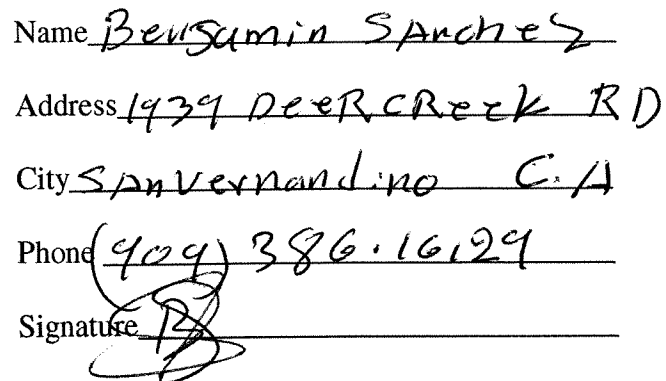 Name Benjamin SAnchez
Address 1939 DeeRCReek RD
City SAnvernandino C.A
Phone (909) 386.16,29
Signature